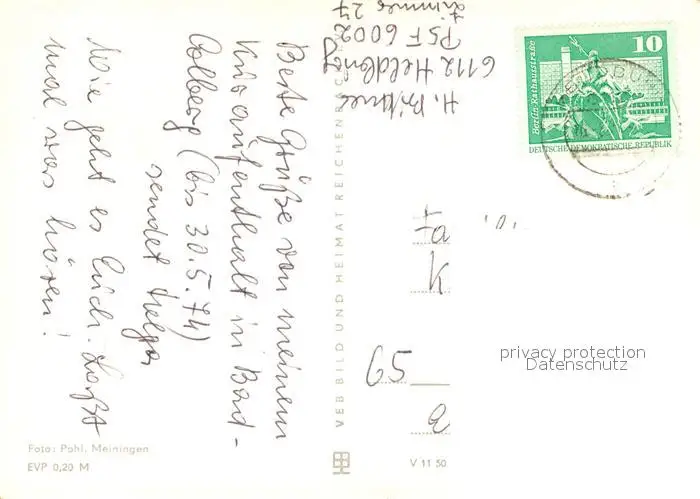 H. Büttner
6112 Heldburg
PSF 6002
Zimmer 27
Beste Grüße von meinem
Kuraufenthalt in Bad-
Colberg (bis 30.5.74)
sendet Helga
Wie geht es Euch. Laßt
mal was hören!
VEB BILD UND HEIMAT REICHEN
10
Berlin Rathausstraße
DEUTSCHE DEMOKRATISCHE REPUBLIK
Fa
k
65
a
privacy protection
Datenschutz
Foto: Pohl, Meiningen
EVP 0,20 M
V 11 50